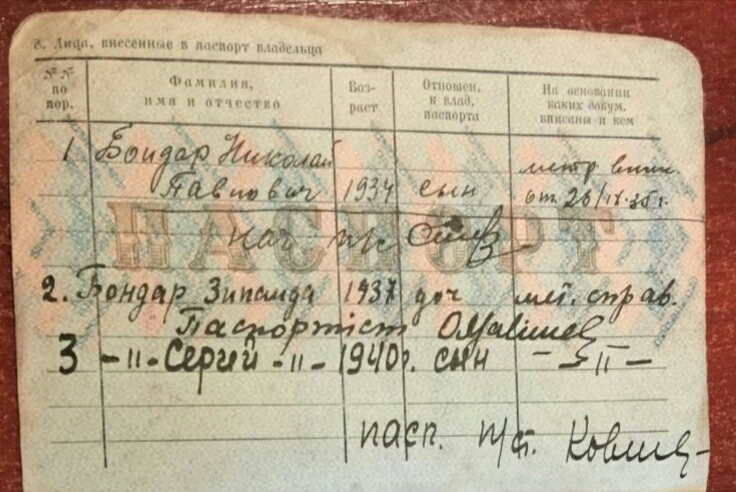 8. Лица, внесенные в паспорт владельца
№№ по пор.
Фамилия, имя и отчество
Воз- раст
Отношен. к влад. паспорта
На основании каких докум. вписаны и кем
1 Бондар Николай метр. выпис
Павлович 1934 сын от 26/IX-35 г.
Нач п/с
ПАСПОРТ
2. Бондар Зинаида 1937 доч мет. справ.
Паспортіст
3 -"- Сергей -"- 1940 г. сын -"-
пасп. п/ст.